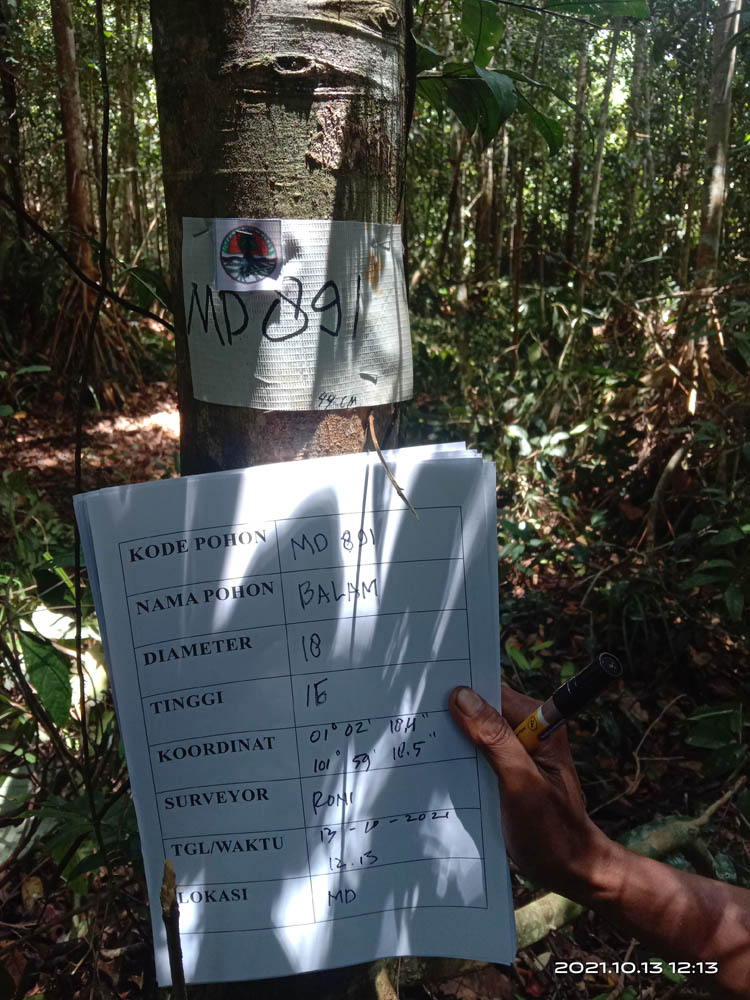 MD 891
44 CM
KODE POHON MD 891
NAMA POHON BALAM
DIAMETER 18
TINGGI 15
KOORDINAT 01° 02' 18.4"
101° 59' 18.5"
SURVEYOR RONI
TGL/WAKTU 13-10-2021
12.13
LOKASI MD
2021.10.13 12:13